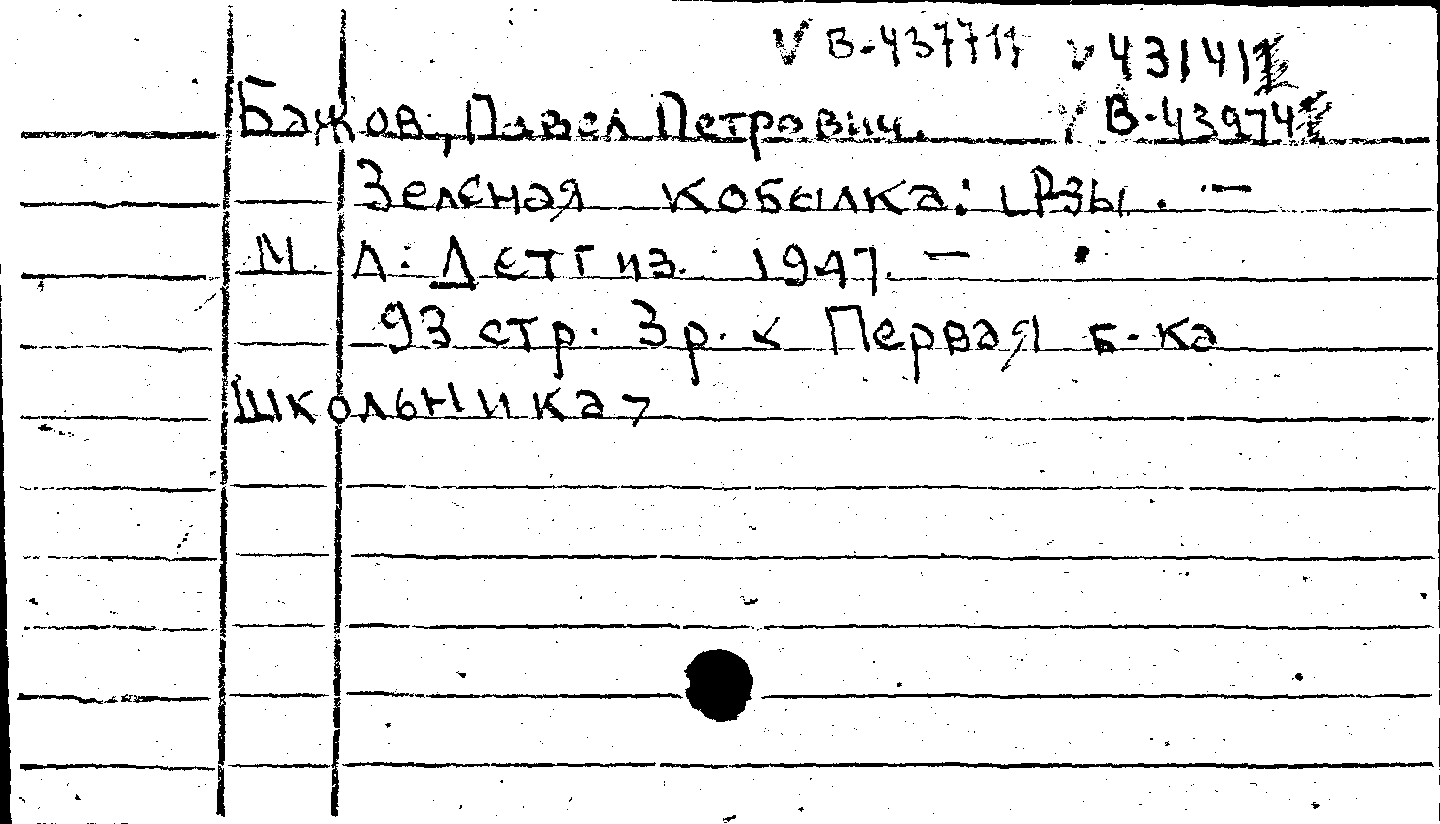 В-437711 43141
Бажов, Павел Петрович. В-43974
Зеленая кобылка: —
М Л: Детгиз. 1947. —
93 стр. 3 р. < Первая б-ка
школьника >